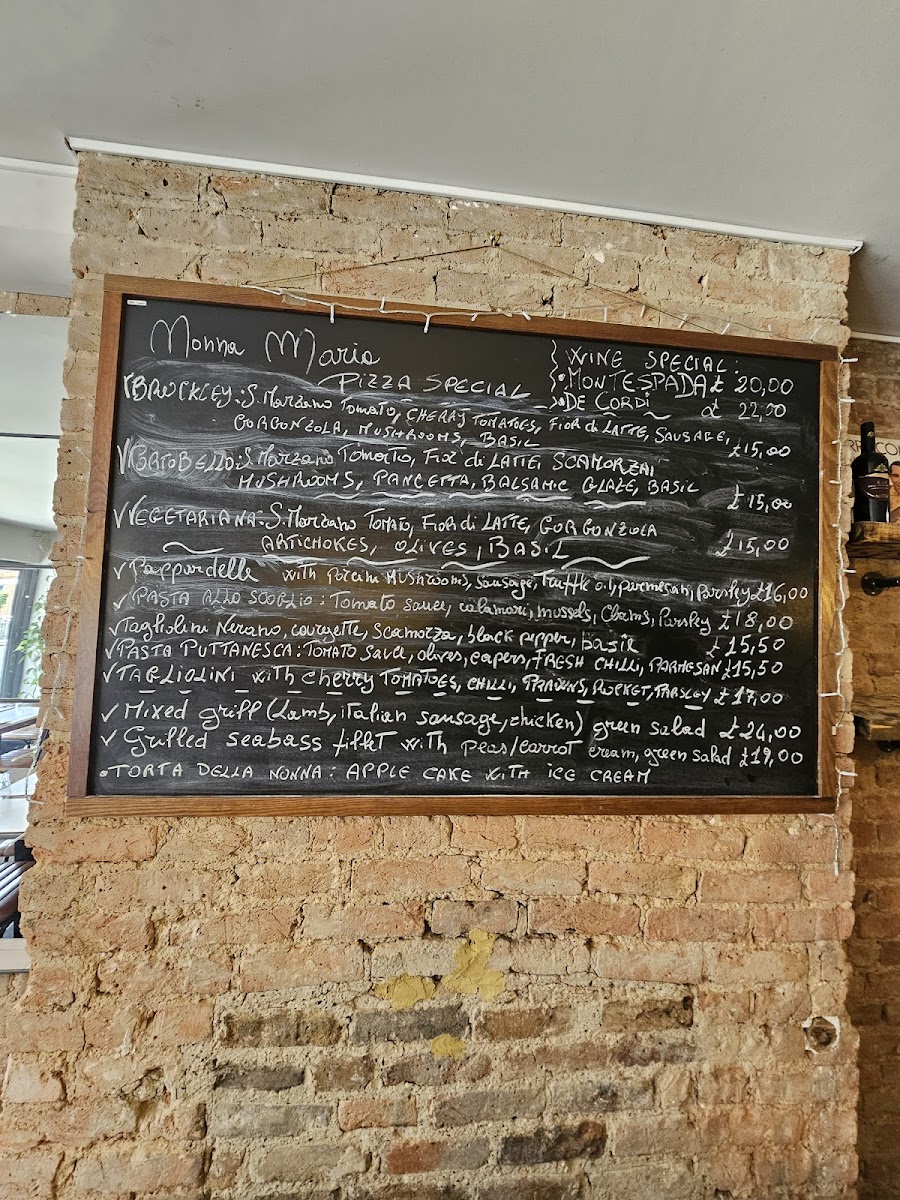 Monna Maria
PIZZA SPECIAL
WINE SPECIAL:
• MONTESPADA £ 20,00
• DE CORDI £ 22,00
BROCKLEY: S. Marzano Tomato, CHERRY TOMATOES, FIOR di LATTE, SAUSAGE,
GORGONZOLA, MUSHROOMS, BASIL £15,00
PORTOBELLO: S. Marzano Tomato, Fior di LATTE, SCAMORZA,
MUSHROOMS, PANCETTA, BALSAMIC GLAZE, BASIL £15,00
VEGETARIANA: S. Marzano Tomato, FIOR di LATTE, GORGONZOLA
ARTICHOKES, OLIVES, BASIL £15,00
✓ Pappardelle with Porcini MUSHROOMS, Sausage, truffle oil, parmesan, Parsley £16,00
✓ PASTA ALLO SCOGLIO: Tomato sauce, calamari, mussels, Clams, Parsley £18,00
✓ Tagliolini Nerano, courgette, Scamorza, black pepper, basil £15,50
✓ PASTA PUTTANESCA: TOMATO SAUCE, olives, capers, FRESH CHILLI, PARMESAN £15,50
✓ TAGLIOLINI with cherry TOMATOES, CHILLI, PRAWNS, ROCKET, PARSLEY £17,00
✓ Mixed grill (Lamb, italian sausage, chicken) green salad £24,00
✓ Grilled seabass fillet with peas/carrot cream, green salad £19,00
• TORTA DELLA NONNA: APPLE CAKE WITH ICE CREAM